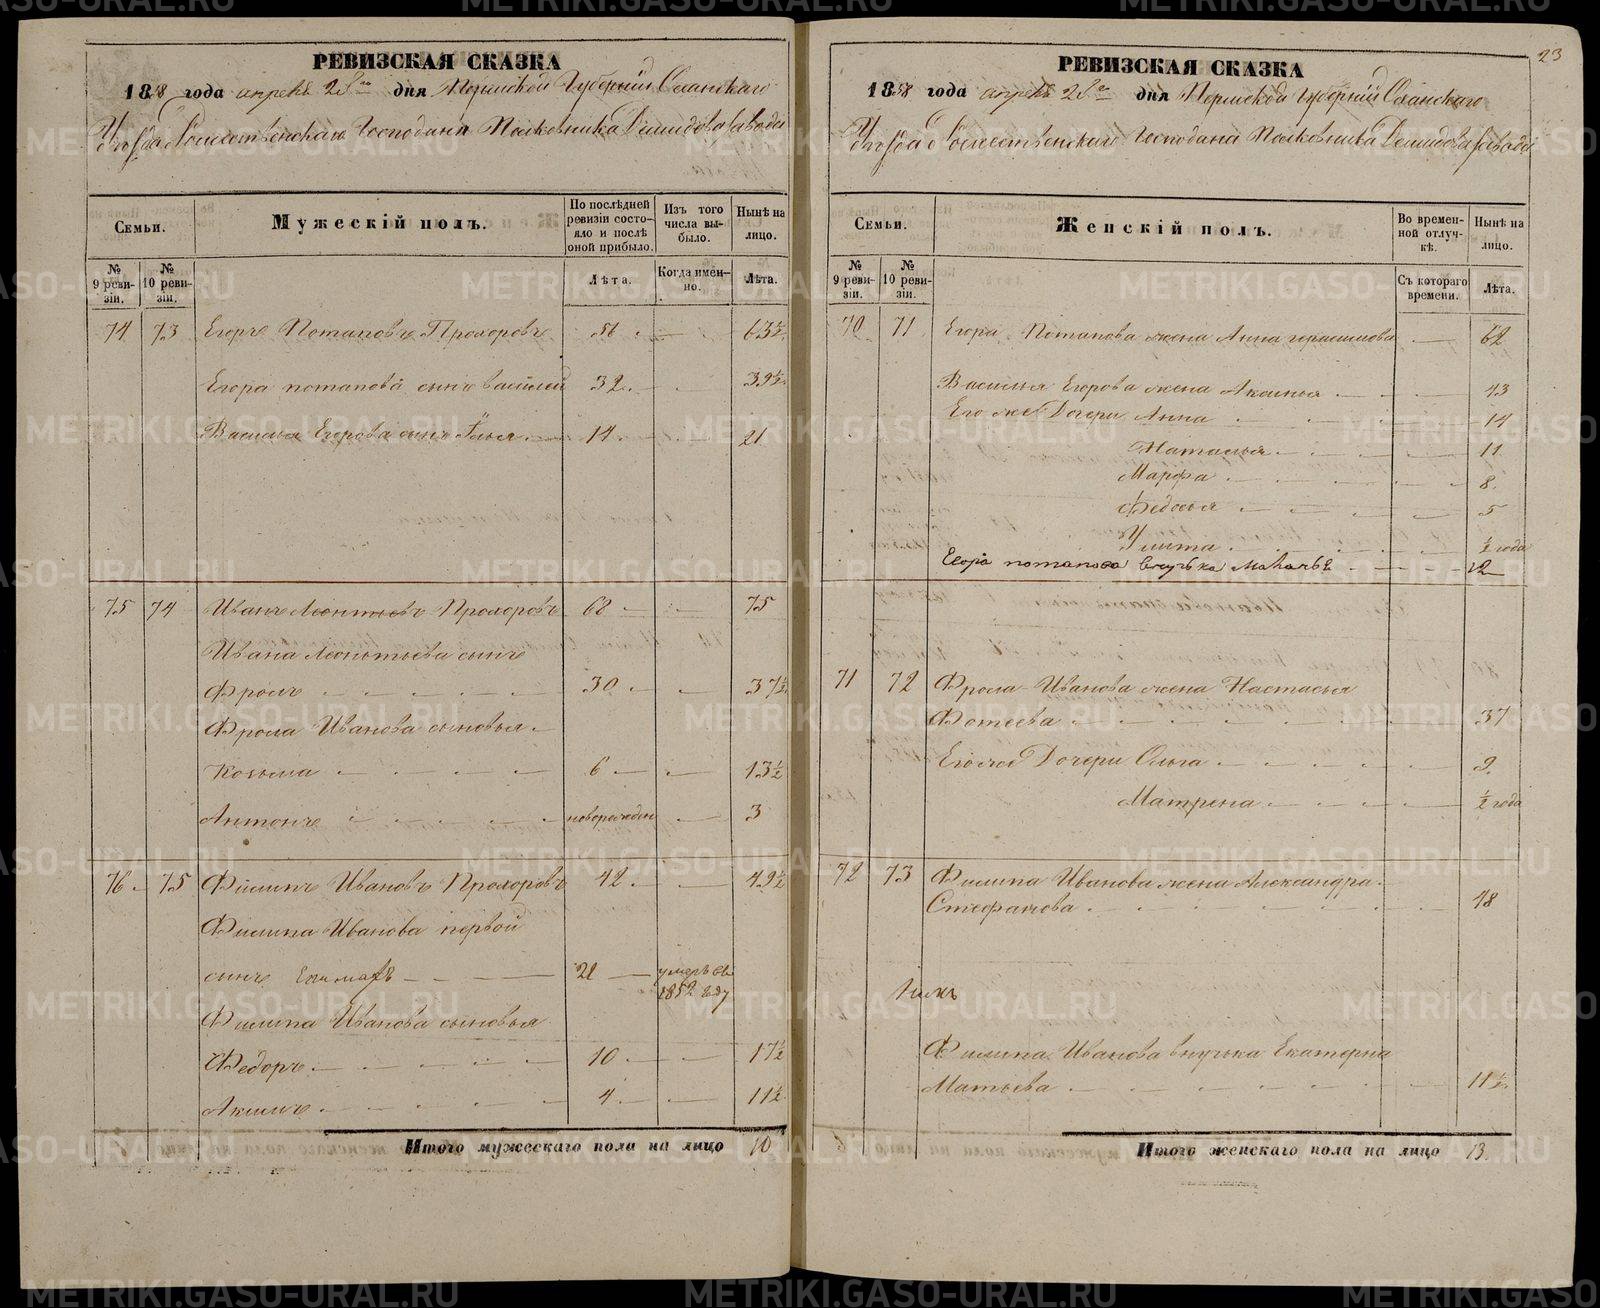 РЕВИЗСКАЯ СКАЗКА
1858 года апреля 28го дня Пермской Губернiи Оханскаго
Уѣзда Рождественскаго Господина Полковника Демидова завода
Семьи.
Мужескiй полъ.
По послѣдней ревизiи состояло и послѣ оной прибыло.
Изъ того числа выбыло.
Нынѣ на лицо.
№ 9 ревизiи.
№ 10 ревизiи.
Лѣта.
Когда именно.
Лѣта.
74 73 Егоръ Потаповъ Прохоровъ 56 63½
Егора потапова сынъ василей 32 39½
Василья Егорова сынъ Илья 14 21
75 74 Иванъ Леонтьевъ Прохоровъ 68 75
Ивана Леонтьева сынъ
Фролъ 30 37½
Фрола Иванова сыновья
Козьма 6 13½
Антонъ новорожден 3
76 75 Филипъ Ивановъ Прохоровъ 42 49½
Филипа Иванова первой
сынъ 21 умеръ въ
1852 году
Филипа Иванова сыновья
Федоръ 10 17½
Акимъ 4 11½
Итого мужескаго пола на лицо 10
23
РЕВИЗСКАЯ СКАЗКА
1858 года апреля 28го дня Пермской Губернiи Оханскаго
Уѣзда Рождественскаго Господина Полковника Демидова завода
Семьи.
Женскiй полъ.
Во временной отлучкѣ.
Нынѣ на лицо.
№ 9 ревизiи.
№ 10 ревизiи.
Съ котораго времени.
Лѣта.
70 71 Егора Потапова жена Анна герасимова 62
Василья Егорова жена Аксинья 43
Его же Дочери Анна 14
Наталья 11
Марфа 8
Федосья 5
Улита ½ года
Егора потапова внучька 12
71 72 Фрола Иванова жена Настасья
Фотеева 37
Его же Дочери Ольга 9
Матрена ½ года
72 73 Филипа Иванова жена Александра
Стефанова 48
Филипа Иванова внучька Екатерина
Матвева 11½
Итого женскаго пола на лицо 13
METRIKI.GASO-URAL.RU